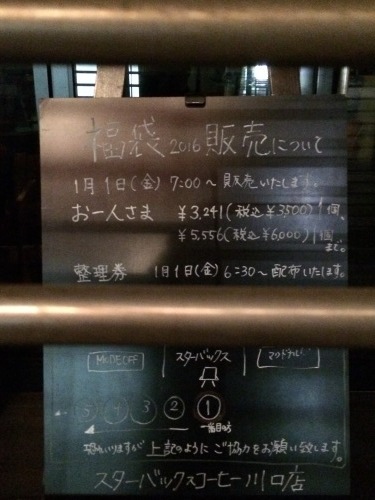 福袋2016販売について
1月1日(金) 7:00〜販売いたします。
お一人さま ¥3,241(税込¥3,500) 1個、
¥5,556(税込¥6,000) 1個
まで。
整理券 1月1日(金) 6:30〜配布いたします。
MODE OFF スターバックス マクドナルド
5 4 3 2 1
一番目の方
恐れいりますが 上記のように ご協力をお願い致します。
スターバックスコーヒー川口店